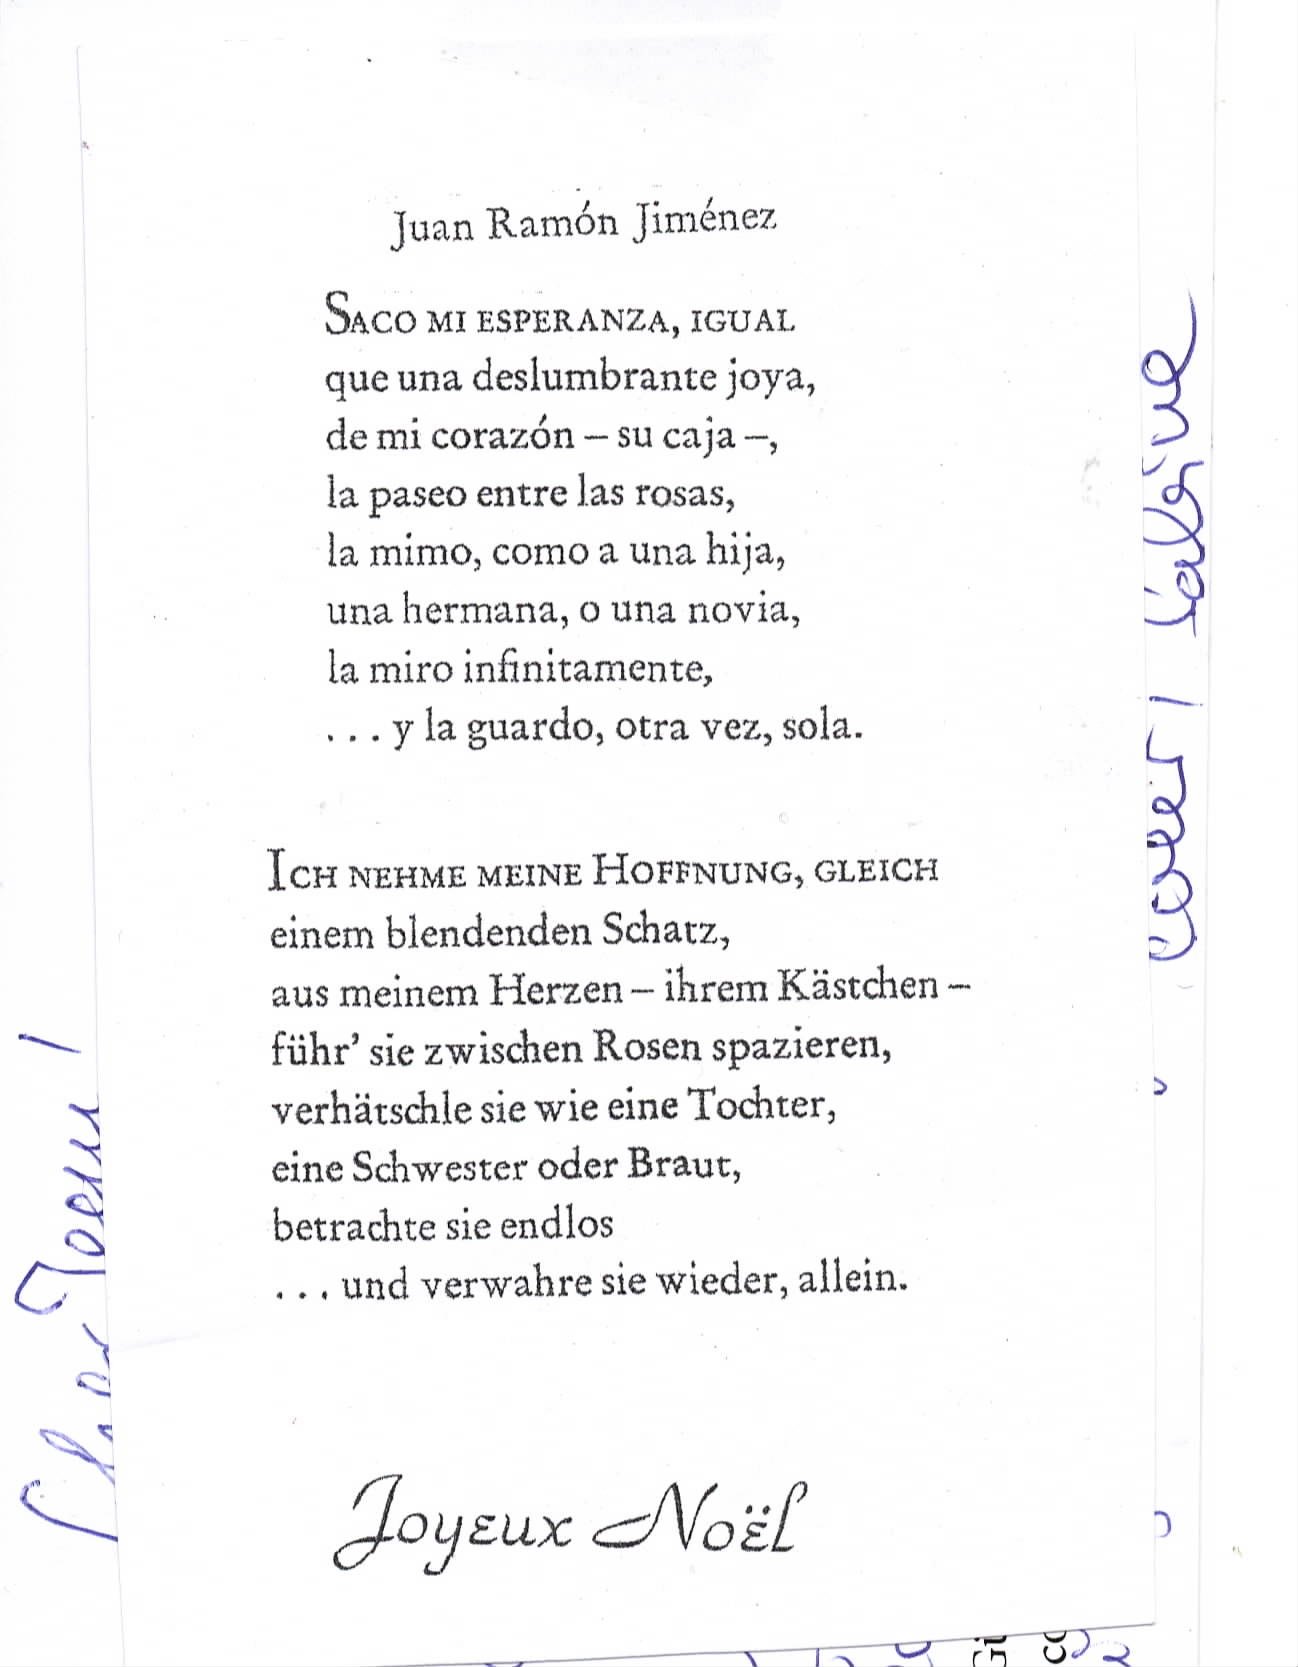 Juan Ramón Jiménez
SACO MI ESPERANZA, IGUAL
que una deslumbrante joya,
de mi corazón – su caja –,
la paseo entre las rosas,
la mimo, como a una hija,
una hermana, o una novia,
la miro infinitamente,
. . . y la guardo, otra vez, sola.
ICH NEHME MEINE HOFFNUNG, GLEICH
einem blendenden Schatz,
aus meinem Herzen – ihrem Kästchen –
führ’ sie zwischen Rosen spazieren,
verhätschle sie wie eine Tochter,
eine Schwester oder Braut,
betrachte sie endlos
. . . und verwahre sie wieder, allein.
Joyeux Noël